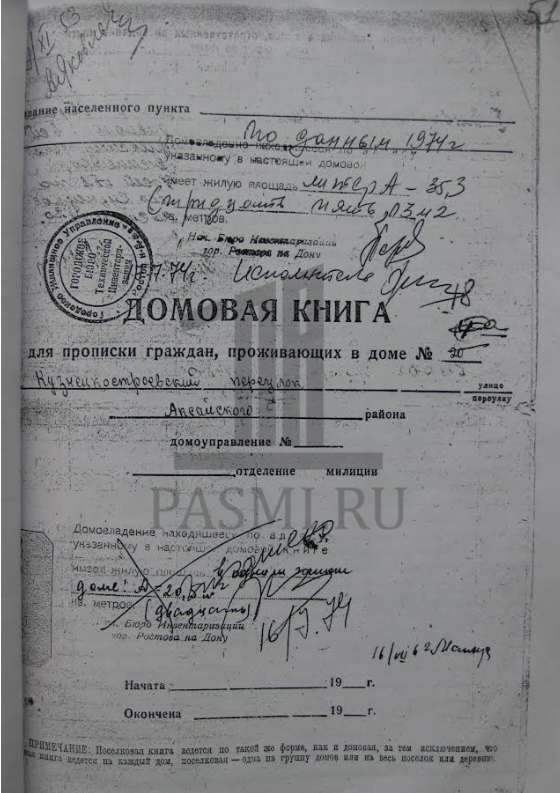 /XI 53
ование населенного пункта
По данным 1974г
Домовладение находящееся по
указанному в настоящей домовой
имеет жилую площадь литер А - 35,3
(тридцать пять 03 м2
кв. метров.
Нач. Бюро Инвентаризации
гор. Ростова на Дону
74г. Исполнитель
Городское Управление
ГОРОДСКОЕ
БЮРО
Технической
Инвентаризации
ДОМОВАЯ КНИГА
для прописки граждан, проживающих в доме № 20
Кузнецкостроевский переулок улице
переулку
Аксайского района
домоуправление №
отделение милиции
PASMI.RU
Домовладение находящееся по
указанному в настоящей домовой книге
имеет жилую площадь в одном жилом
доме: А - 20,
кв. метров (двадцать)
Нач. Бюро Инвентаризации
гор. Ростова на Дону
16/9.74
16/VII 62
Начата 19 г.
Окончена 19 г.
ПРИМЕЧАНИЕ: Поселковая книга ведется по такой же форме, как и домовая, за тем исключением, что
книга ведется на каждый дом, поселковая — одна на группу домов или на весь поселок или деревню.